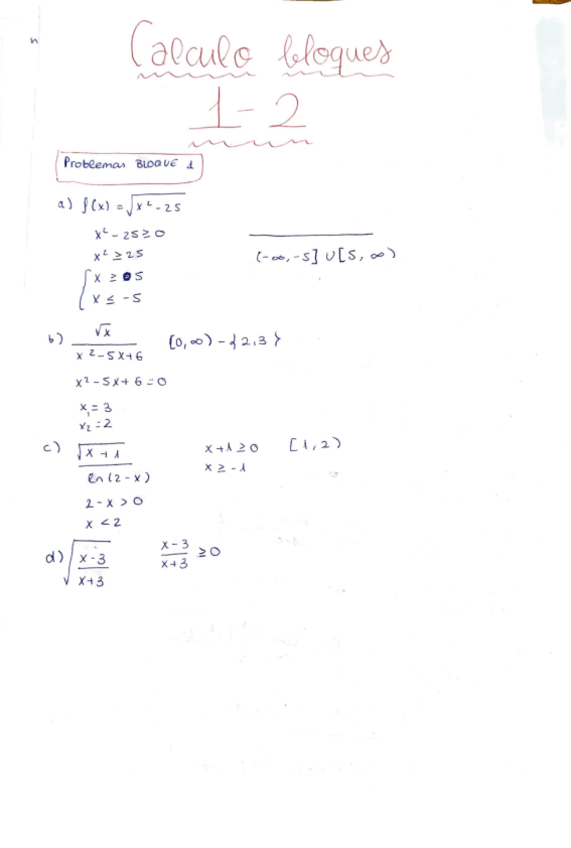 n
Calculo bloques
1-2
Problemas BLOQUE 1
a) f(x) = √x²-25
x² - 25 ≥ 0
x² ≥ 25
(-∞, -5] ∪ [5, ∞)
{ x ≥ 5
x ≤ -5
b) √x / x²-5x+6 [0,∞) - {2,3}
x² - 5x + 6 = 0
x₁ = 3
x₂ = 2
c) √x+1 / ln(2-x) x+1 ≥ 0 [1,2)
x ≥ -1
2-x > 0
x < 2
d) √x-3 / x+3 x-3 / x+3 ≥ 0